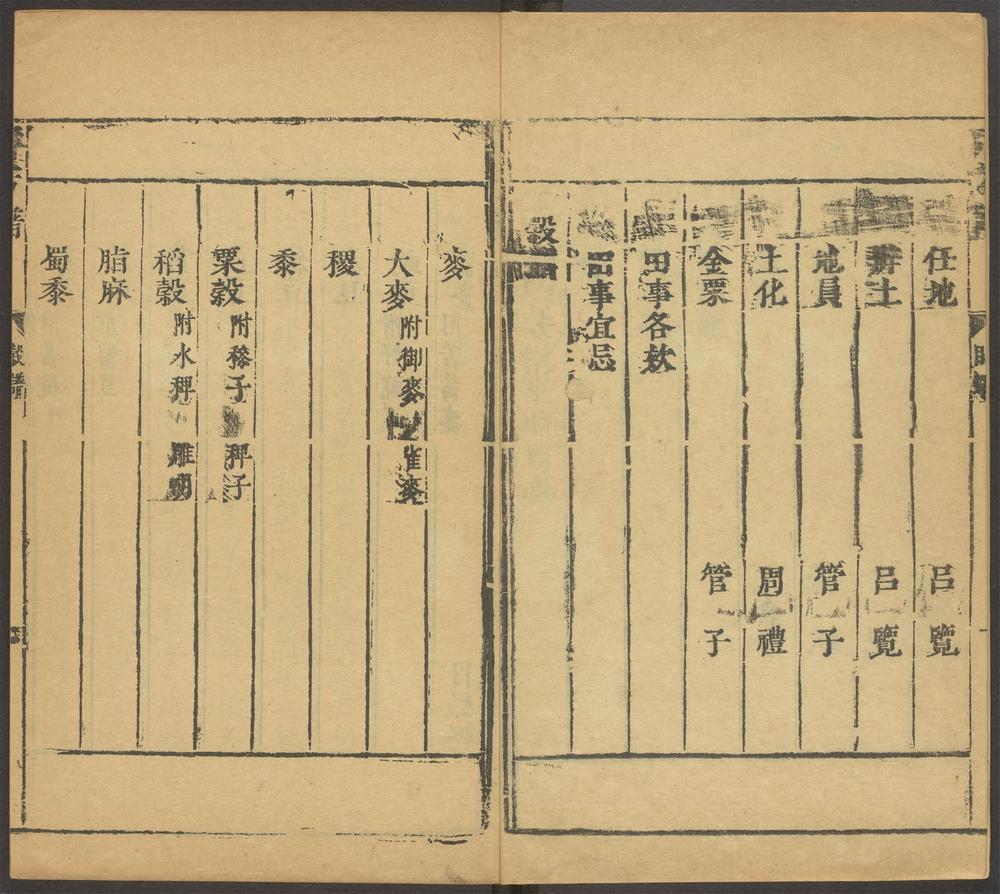 任地 呂覽
辨土 呂覽
地員 管子
土化 周禮
金票 管子
田事各欵
田事宜忌
穀
麥
大麥 附御麥 雀麥
稷
黍
粟穀 附穇子 稗子
稻穀 附水稗 雕胡
脂麻
蜀黍
穀譜